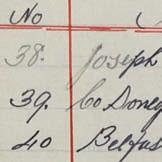 No
38. Joseph
39. Co Doneg
40 Belfas